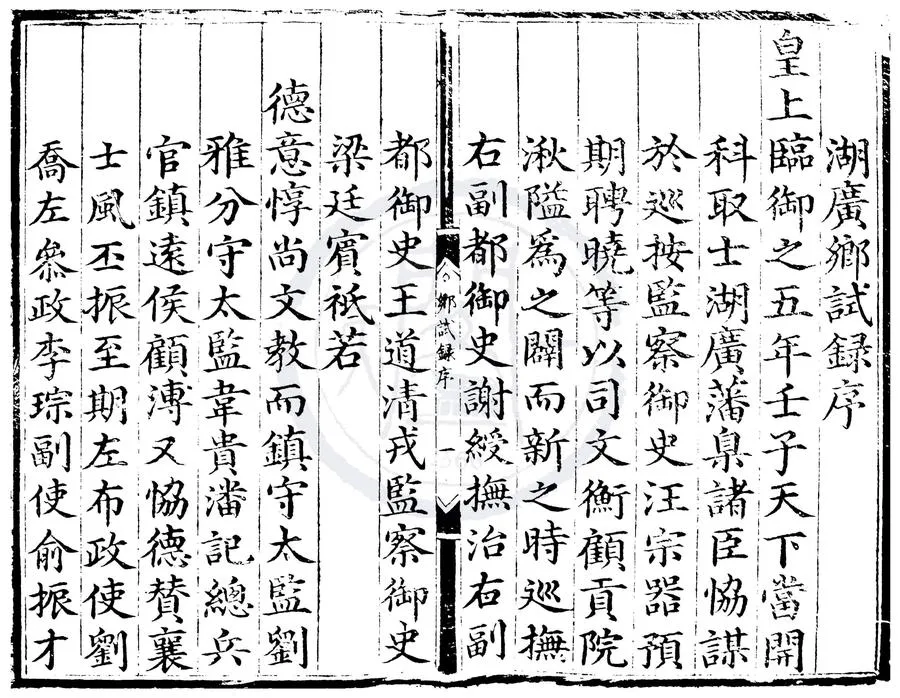 湖廣鄉試録序
皇上臨御之五年壬子天下當開
科取士湖廣藩臬諸臣恊謀
於巡按監察御史汪宗器預
期聘曉等以司文衡顧貢院
湫隘爲之闢而新之時巡撫
右副都御史謝綬撫治右副
鄉試録序
一
都御史王道清戎監察御史
梁廷賓祗若
德意惇尚文教而鎮守太監劉
雅分守太監韋貴潘記總兵
官鎮遠侯顧溥又恊德賛襄
士風丕振至期左布政使劉
喬左叅政李琮副使俞振才